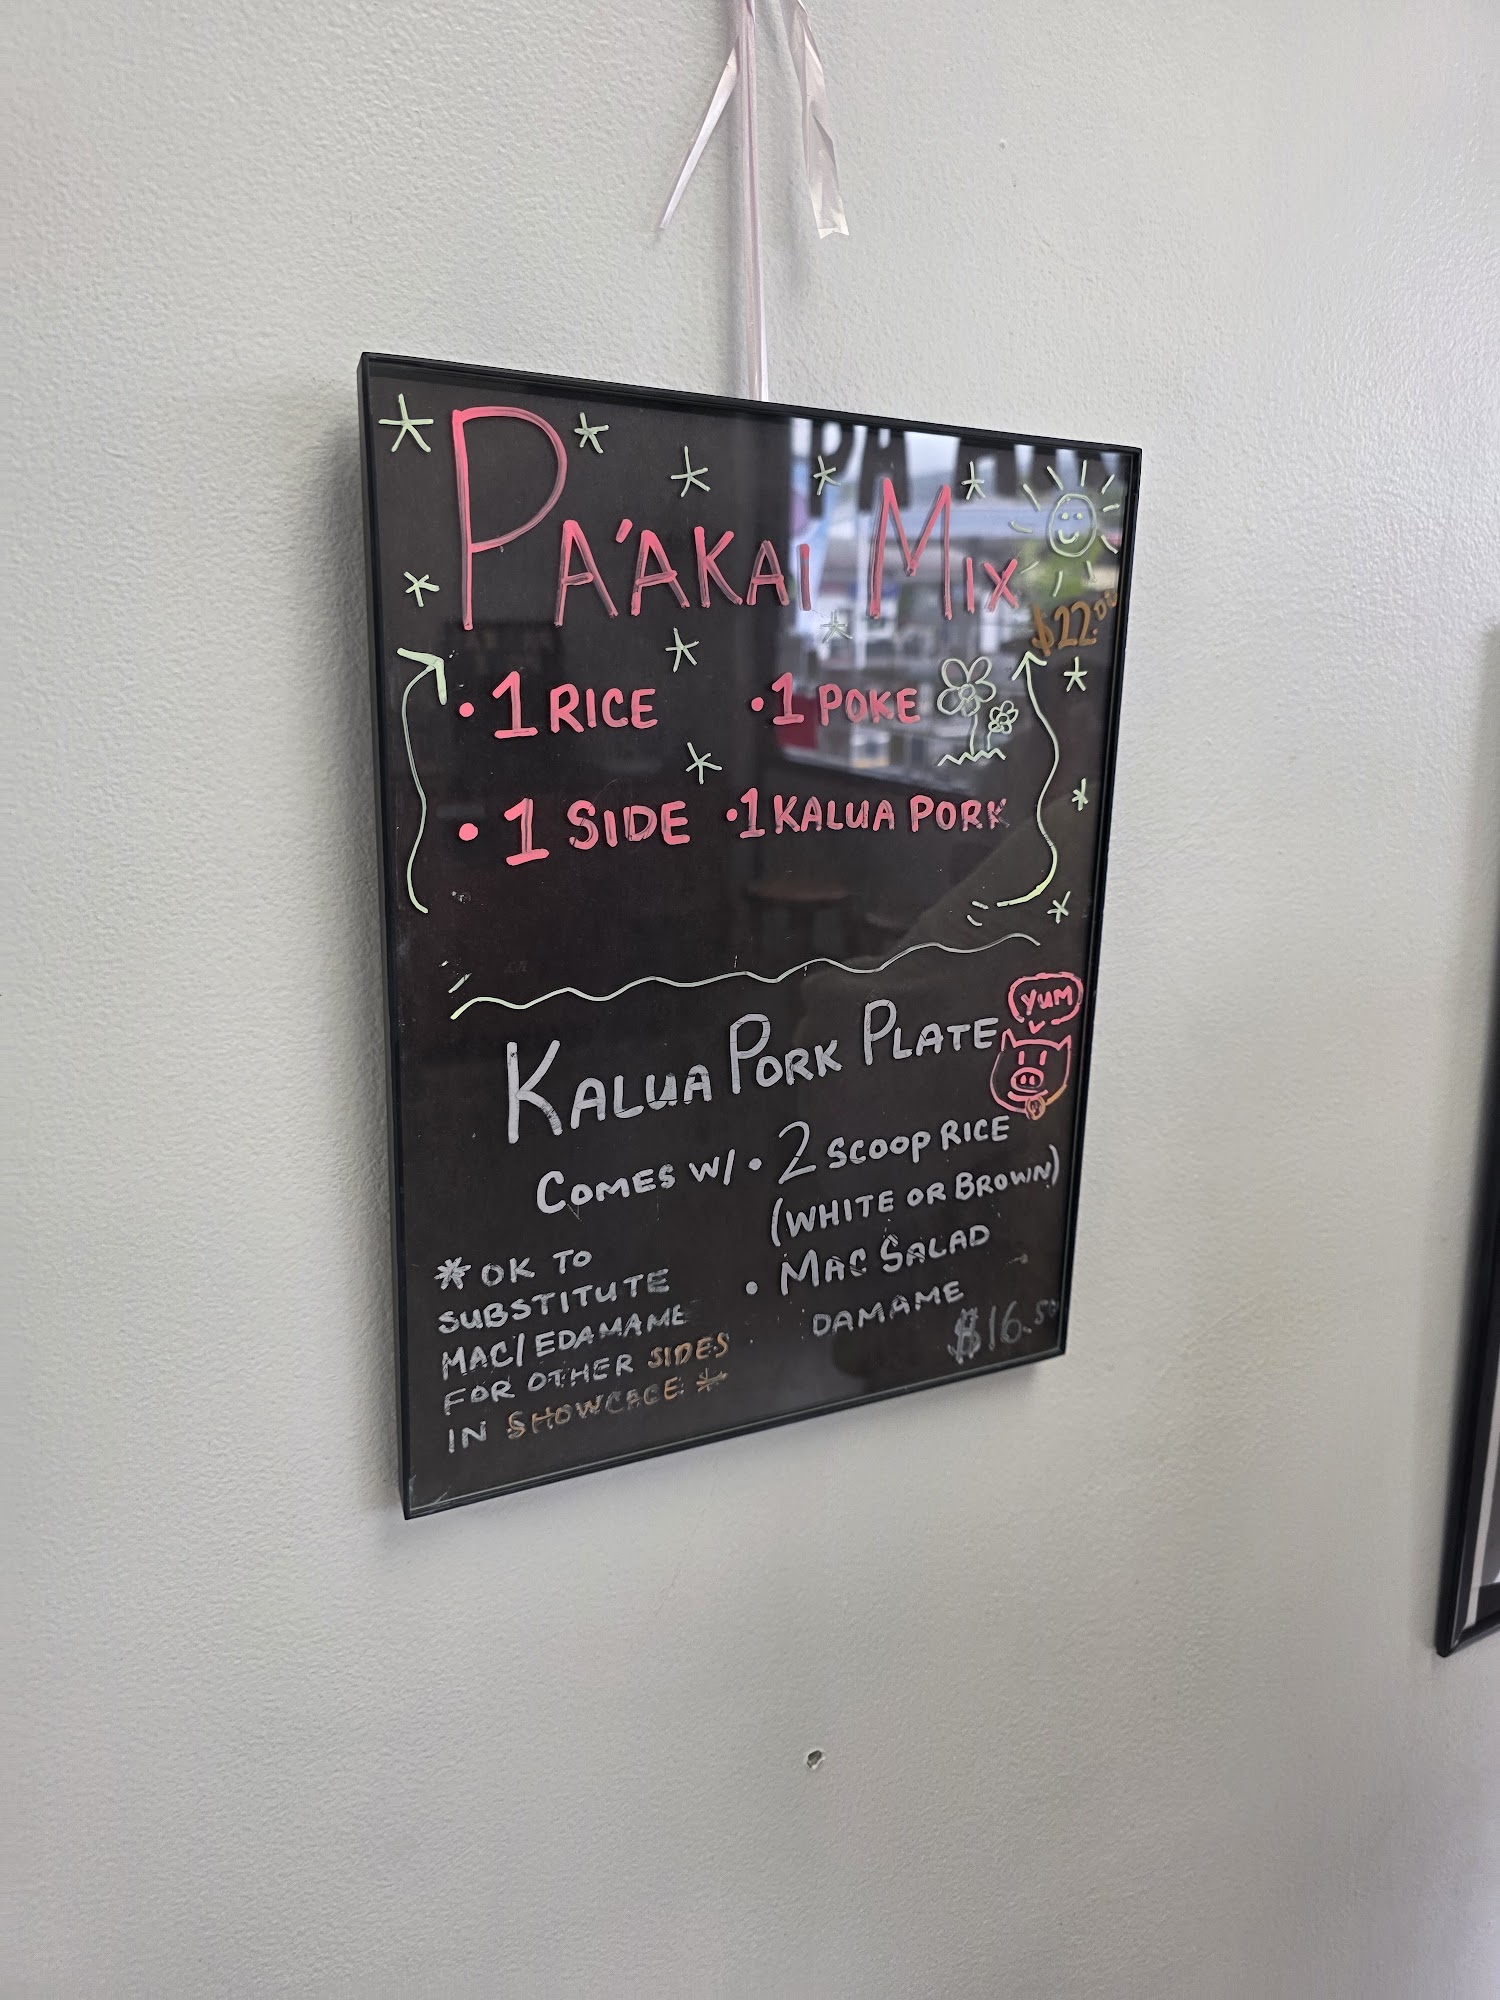 PA'AKAI MIX
$22.00
• 1 RICE • 1 POKE
• 1 SIDE • 1 KALUA PORK
YUM
KALUA PORK PLATE
COMES W/ • 2 SCOOP RICE
(WHITE OR BROWN)
• MAC SALAD
DAMAME
$16.50
*OK TO
SUBSTITUTE
MAC/EDAMAME
FOR OTHER SIDES
IN SHOWCASE *